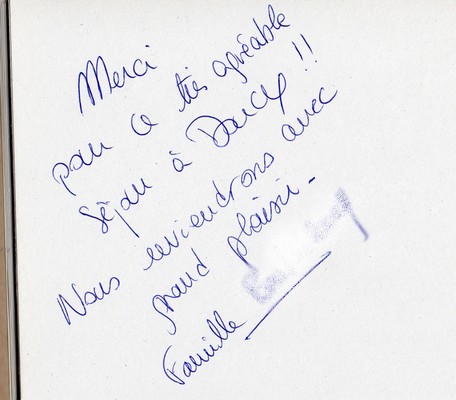 Merci
pour ce très agréable
séjour à Dancy !!
Nous reviendrons avec
grand plaisir -
Famille